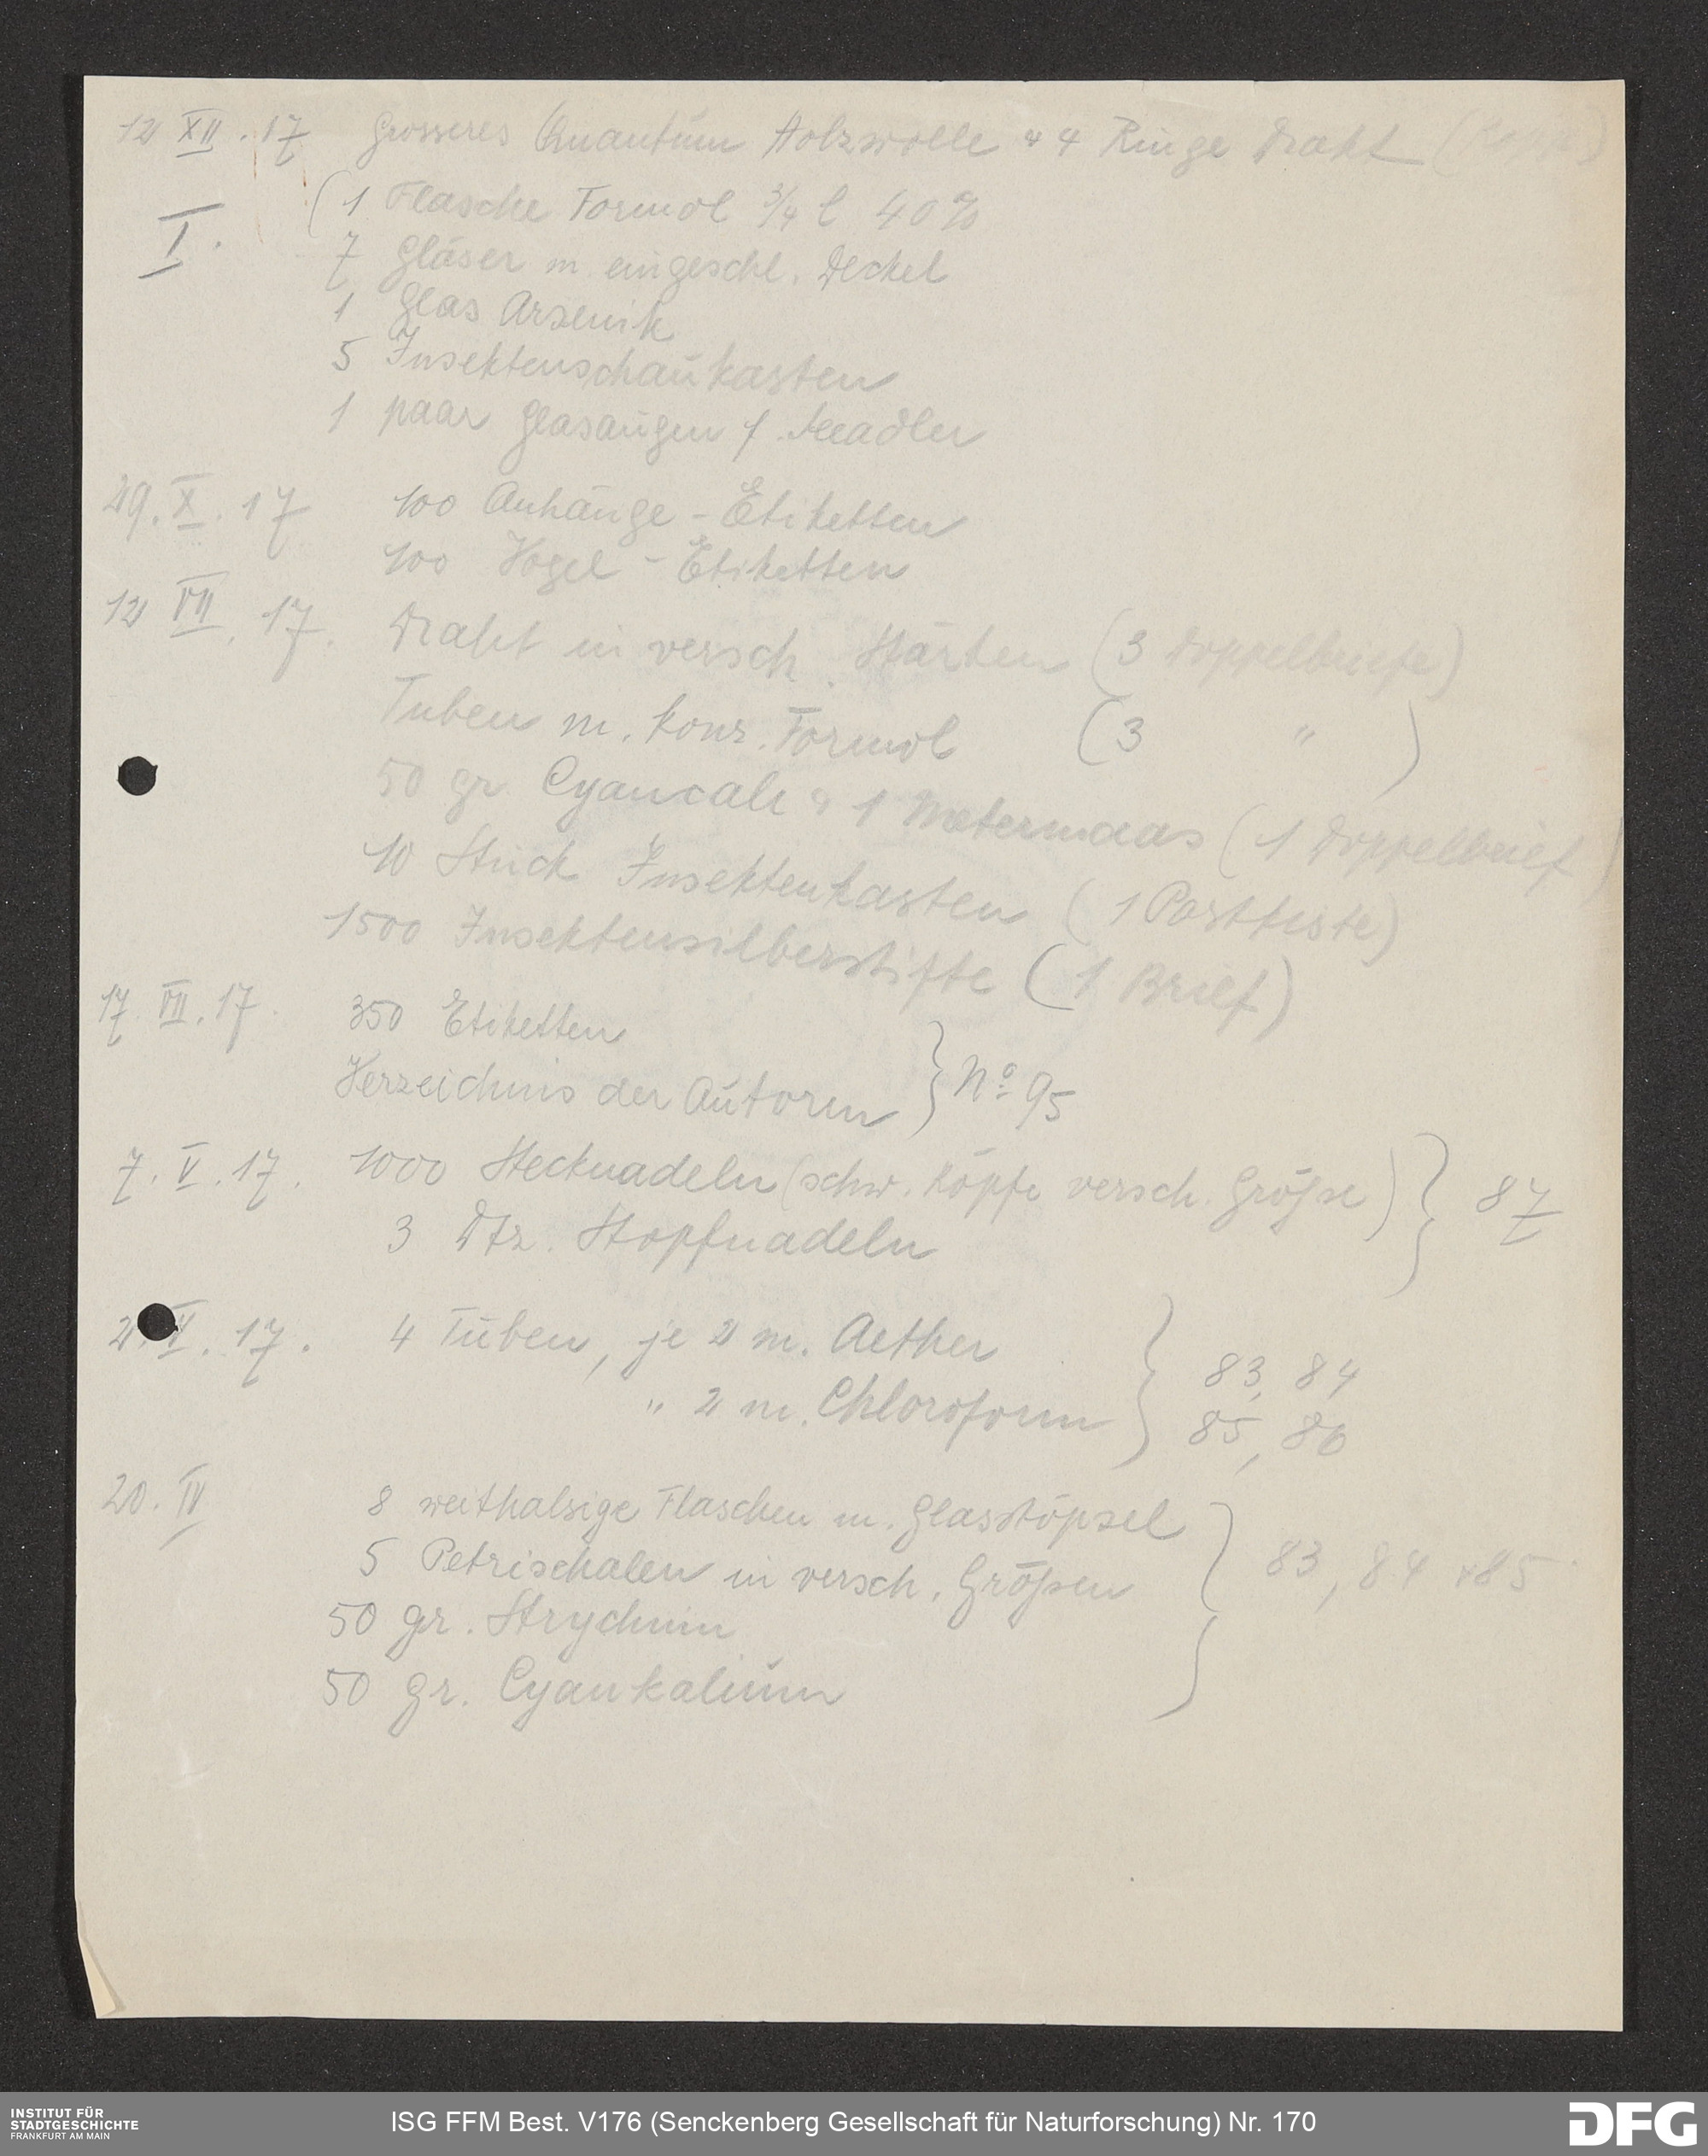 12 XII. 17 Grosseres Quantum Holzwolle & 4 Ringe Draht
I. (1 Flasche Formol 3/4 l 40%
7 Gläser m. eingeschl. Deckel
1 Glas Arsenik
5 Insektenschaukasten
1 paar Glasaugen f.
29. X. 17 100 Anhänge-Etiketten
100 Vogel-Etiketten
12 VII. 17. Draht in versch. Stärken (3 Doppelbriefe)
Tuben m. konz. Formol (3 " )
50 gr. Cyancali & 1 Metermaas (1 Doppelbrief)
10 Stück Insektenkasten (1 Postkiste)
1500 Insektensilberstifte (1 Brief)
17. VII. 17. 350 Etiketten
Verzeichnis der Autoren } No 95
7. V. 17. 1000 Stecknadeln (schw. Köpfe versch. Größe) } 87
3 Dtz. Stopfnadeln
2. V. 17. 4 Tuben, je 2 m. Aether } 83, 84
" 2 m. Chloroform 85, 86
20. IV 8 weithalsige Flaschen m. Glasstöpsel
5 Petrischalen in versch. Größen } 83, 84 & 85
50 gr. Strychnin
50 gr. Cyankalium
INSTITUT FÜR
STADTGESCHICHTE
FRANKFURT AM MAIN
ISG FFM Best. V176 (Senckenberg Gesellschaft für Naturforschung) Nr. 170
DFG